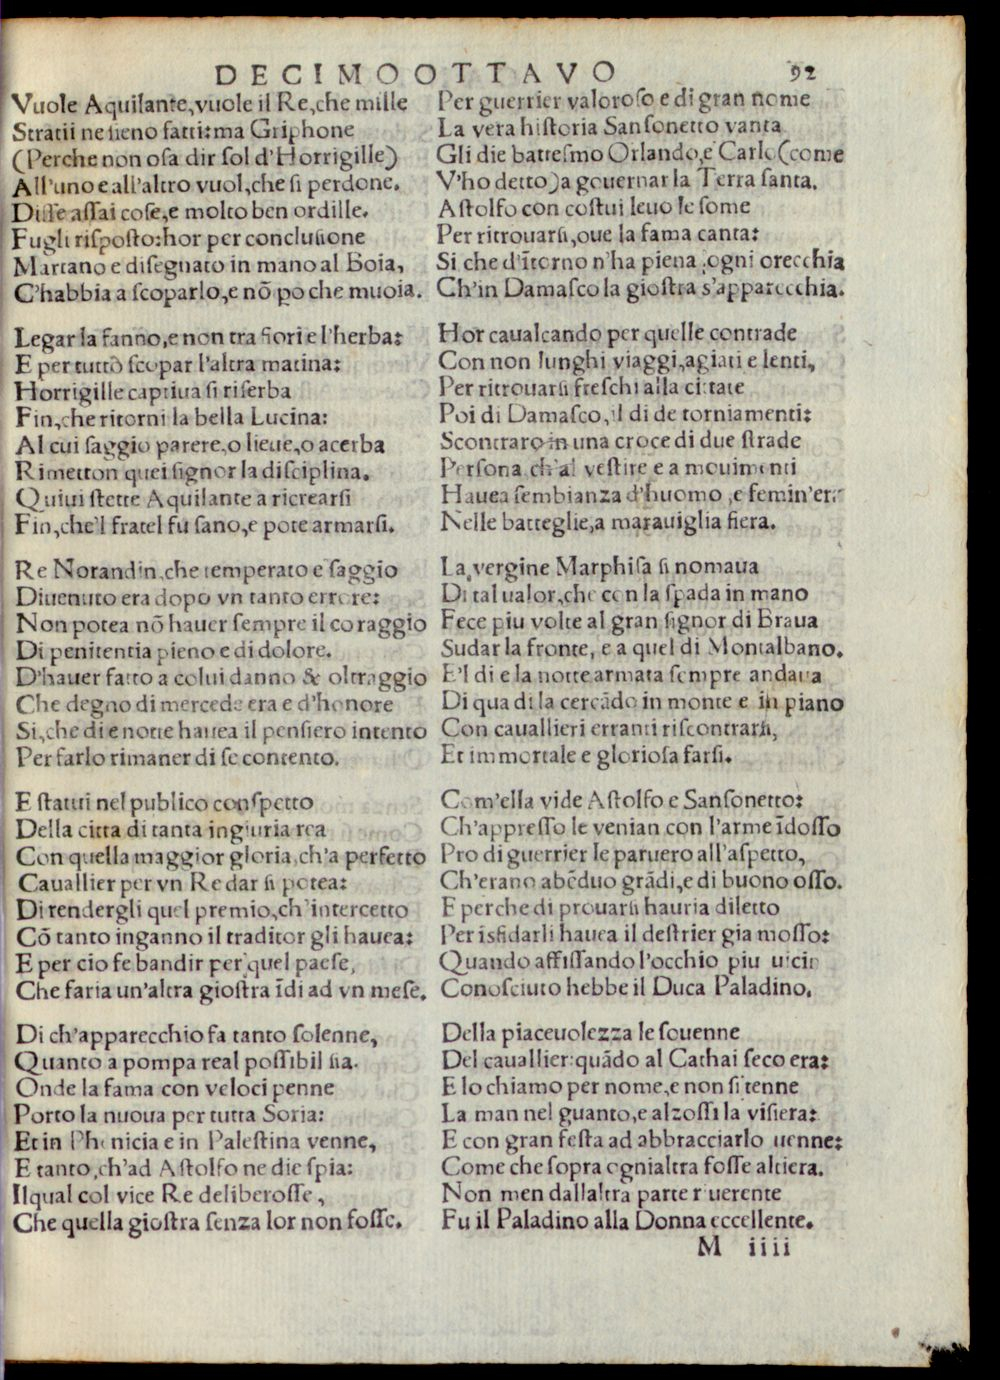 DECIMOOTTAVO 92
Vuole Aquilante,vuole il Re,che mille
Stratii ne sieno fatti:ma Griphone
(Perche non osa dir sol d'Horrigille)
All'uno e all'altro vuol,che si perdone.
Disse assai cose,e molto ben ordille.
Fugli risposto:hor per conclusione
Martano e disegnato in mano al Boia,
C'habbia a scoparlo,e nō po che muoia.
Legar la fanno,e non tra fiori e l'herba:
E per tutto scopar l'altra matina:
Horrigille captiua si riserba
Fin,che ritorni la bella Lucina:
Al cui saggio parere,o lieue,o acerba
Rimetton quei signor la disciplina.
Quiui stette Aquilante a ricrearsi
Fin,che'l fratel fu sano,e pote armarsi.
Re Norandin,che temperato e saggio
Diuenuto era dopo vn tanto errore:
Non potea nō hauer sempre il coraggio
Di penitentia pieno e di dolore.
D'hauer fatto a colui danno & oltraggio
Che degno di mercede era e d'honore
Si,che di e notte hauea il pensiero intento
Per farlo rimaner di se contento.
E statui nel publico conspetto
Della citta di tanta ingiuria rea
Con quella maggior gloria,ch'a perfetto
Cauallier per vn Re dar si potea:
Di rendergli quel premio,ch'intercetto
Cō tanto inganno il traditor gli hauea:
E per cio fe bandir per quel paese,
Che faria un'altra giostra īdi ad vn mese.
Di ch'apparecchio fa tanto solenne,
Quanto a pompa real possibil sia.
Onde la fama con veloci penne
Porto la nuoua per tutta Soria:
Et in Phenicia e in Palestina venne,
E tanto,ch'ad Astolfo ne die spia:
Ilqual col vice Re deliberosse,
Che quella giostra senza lor non fosse.
Per guerrier valoroso e di gran nome
La vera historia Sansonetto vanta
Gli die battesmo Orlando,e Carlo(come
V'ho detto)a gouernar la Terra santa.
Astolfo con costui leuo le some
Per ritrouarsi,oue la fama canta:
Si che d'ītorno n'ha piena ogni orecchia
Ch'in Damasco la giostra s'apparecchia.
Hor caualcando per quelle contrade
Con non lunghi viaggi,agiati e lenti,
Per ritrouarsi freschi alla cittate
Poi di Damasco,il di de torniamenti:
Scontraro in una croce di due strade
Persona ch'al vestire e a mouimenti
Hauea sembianza d'huomo,e femin'era
Nelle batteglie,a marauiglia fiera.
La vergine Marphisa si nomaua
Di tal ualor,che con la spada in mano
Fece piu volte al gran signor di Braua
Sudar la fronte, e a quel di Montalbano.
E'l di e la notte armata sempre andaua
Di qua di la cercādo in monte e in piano
Con cauallieri erranti riscontrarsi,
Et immortale e gloriosa farsi.
Com'ella vide Astolfo e Sansonetto:
Ch'appresso le venian con l'arme īdosso
Pro di guerrier le paruero all'aspetto,
Ch'erano abēduo grādi,e di buono osso.
E perche di prouarsi hauria diletto
Per isfidarli hauea il destrier gia mosso:
Quando affissando l'occhio piu uicin
Conosciuto hebbe il Duca Paladino.
Della piaceuolezza le souenne
Del cauallier:quādo al Cathai seco era:
E lo chiamo per nome,e non si tenne
La man nel guanto,e alzossi la visiera:
E con gran festa ad abbracciarlo uenne:
Come che sopra ognialtra fosse altiera.
Non men dallaltra parte riuerente
Fu il Paladino alla Donna eccellente.
M iiii